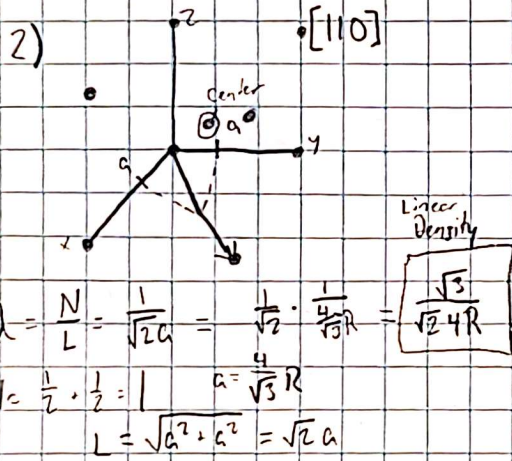 2)
z
[110]
center
a
a
y
x
Linear
Density
λ = N/L = 1/(√2a) = 1/√2 · 1/(4/√3 R) = √3/(√2·4R)
= 1/2 + 1/2 = 1
a = 4/√3 R
L = √(a² + a²) = √2 a